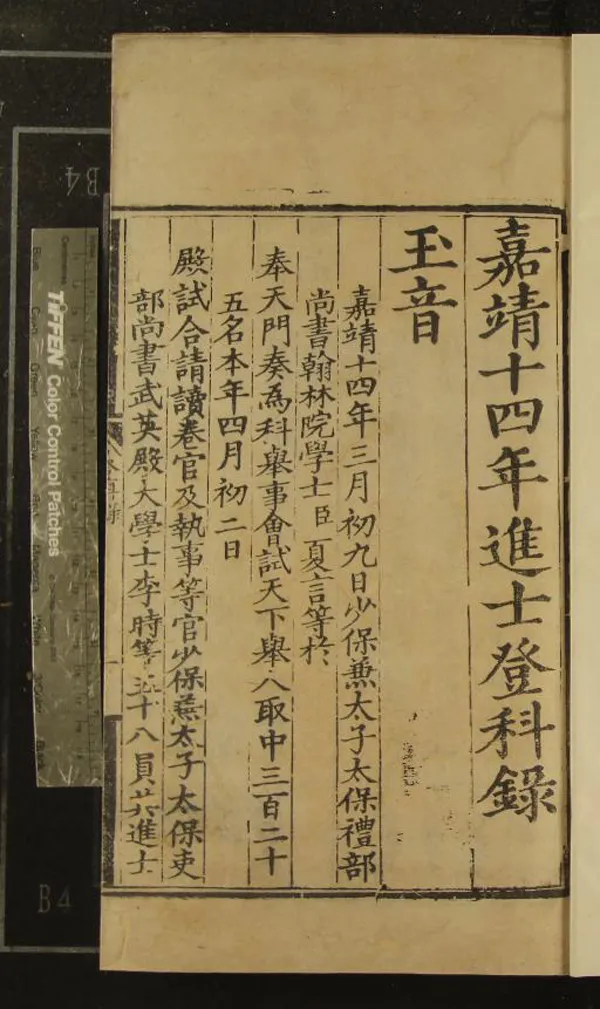 嘉靖十四年進士登科錄
玉音
嘉靖十四年三月初九日少保兼太子太保禮部
尚書翰林院學士臣夏言等於
奉天門奏為科舉事會試天下舉人取中三百二十
五名本年四月初二日
殿試合請讀卷官及執事等官少保兼太子太保吏
部尚書武英殿大學士李時等五十八員其進士
TIFFEN Color Control Patches
B4
B4